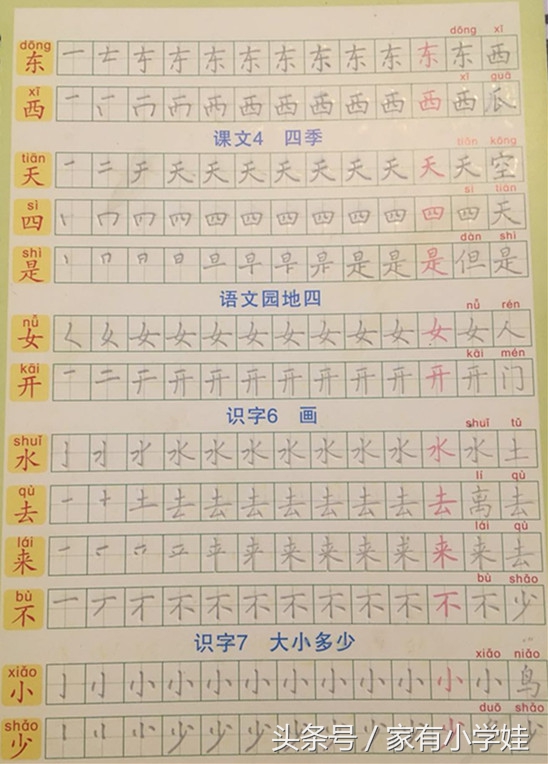 dōng dōng xī
东 东 东 东 东 东 东 东 东 西
xī xī guā
西 西 西 西 西 西 西 西 瓜
课文4 四季
tiān tiān kōng
天 天 天 天 天 天 天 天 天 天 空
sì sì tiān
四 四 四 四 四 四 四 四 四 天
shì dàn shì
是 是 是 是 但 是
语文园地四
nǚ nǚ rén
女 女 女 女 女 女 女 女 女 女 女 人
kāi kāi mén
开 开 开 开 开 开 开 开 开 开 门
识字6 画
shuǐ shuǐ tǔ
水 水 水 水 水 水 水 水 水 水 土
qù lí qù
去 去 去 去 去 去 去 去 离 去
lái lái qù
来 来 来 来 来 来 来 去
bù bù shǎo
不 不 不 不 不 不 不 不 不 不 少
识字7 大小多少
xiǎo xiǎo niǎo
小 小 小 小 小 小 小 小 小 小 小 鸟
shǎo duō shǎo
少 少 少 少
头条号 / 家有小学娃